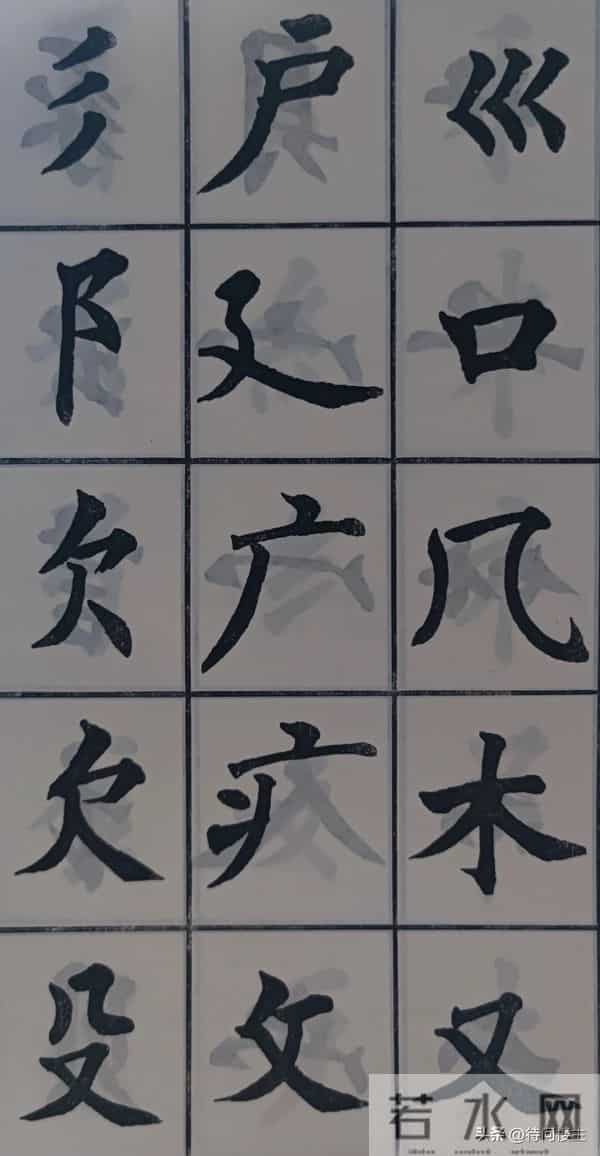 巛口几木又
户廴广疒攵
彡阝欠欠殳
若水网
头条 @待问楼主